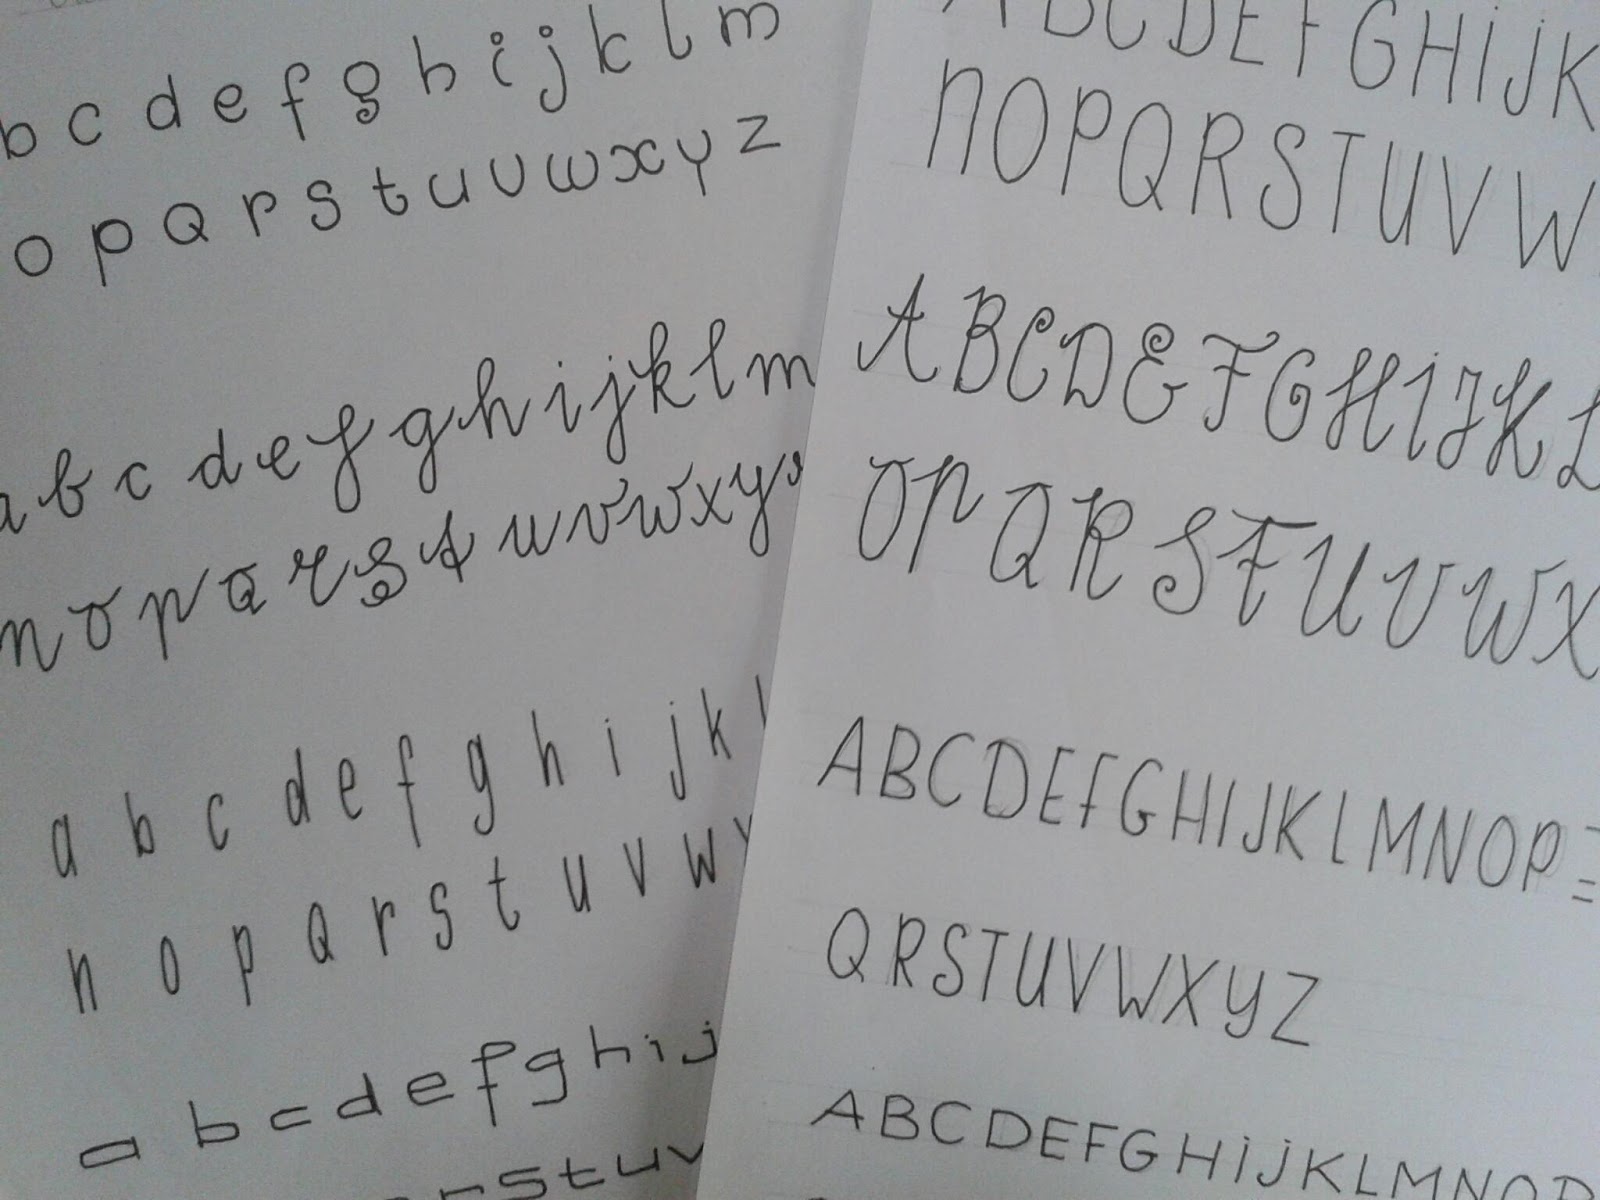 b c d e f g h i j k l m
o p Q r s t u v w x y z
a b c d e f g h i j k l m
n o p Q r s t u v w x y
a b c d e f g h i j k l
n o p Q r s t u v w
a b c d e f g h i j
r s t u v
A B C D E F G H i J K
n O P Q R S T U V W
A B C D E F G H I J K L
O P Q R S T U V W X
A B C D E F G H I J K L M N O P =
Q R S T U V W X y Z
A B C D E F G H i J K L M N O P